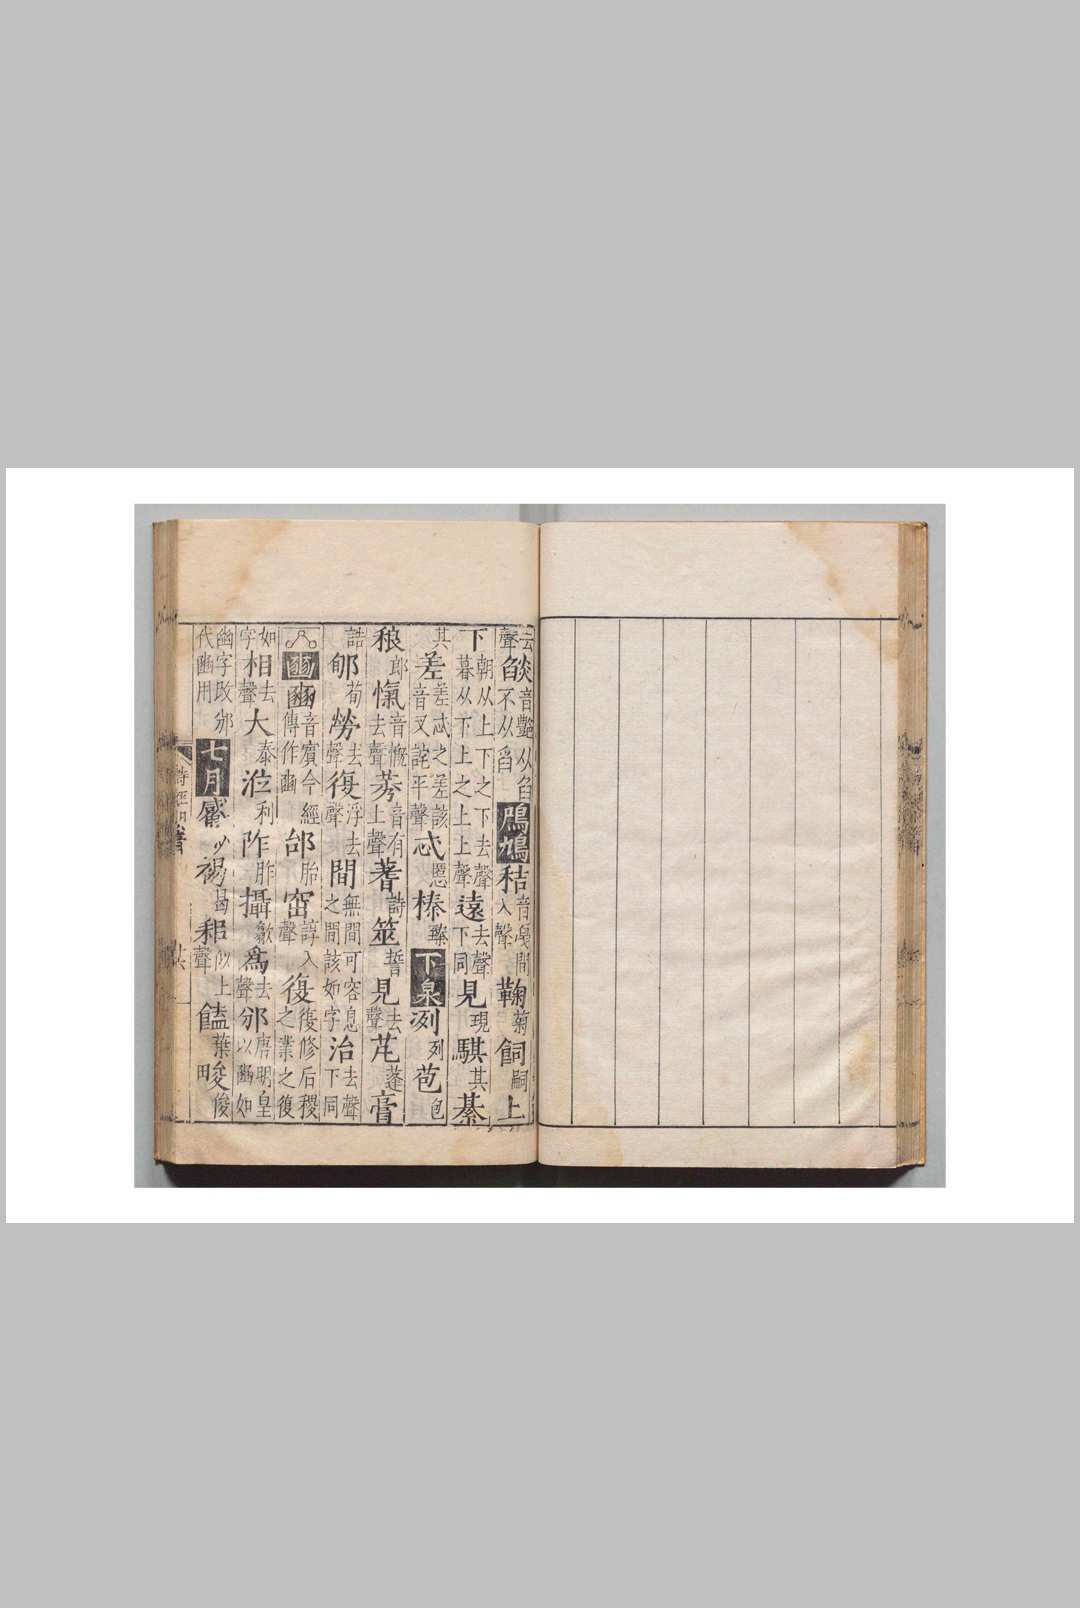 云聲燄音豔从臽不从舀鳲鳩秸音戛間入聲鞠菊飼嗣上
下朝从上下之下去聲暮从下上之上上聲遠去聲下同見現騏其綦
其差差忒之差該音叉詫平聲忒慝榛臻下泉冽列苞包
稂郎愾音慨去聲莠音有上聲蓍詩筮誓見去聲芃蓬膏
誥郇荀勞去聲復浮去聲間無間可容息之間該如字治去聲下同
豳豳音賓今經傳作豳邰胎窋諄入聲復復修后稷之業之復
如字相去聲大泰涖利阼胙攝歙為去聲邠唐明皇以豳如
幽字改邠代豳用七月觱必褐曷耜似上聲饁葉畯俊
詩經